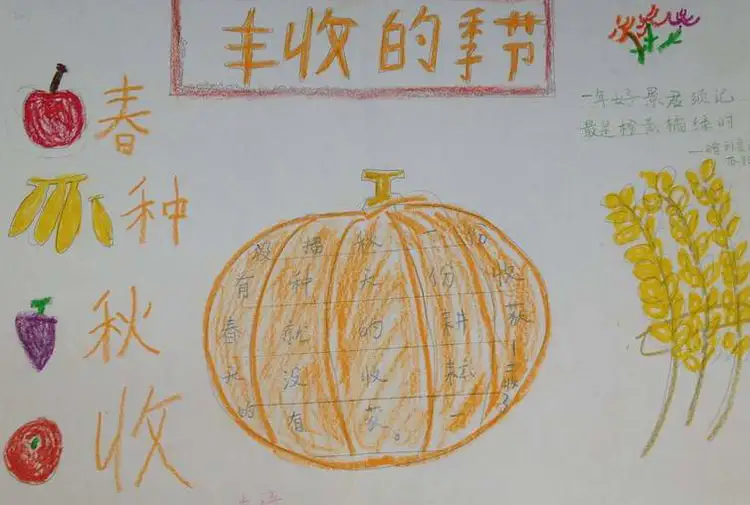 丰收的季节
春
种
秋
收
一年好景君须记
最是橙黄橘绿时
——赠刘景
苏轼
没有春天的
播种就没有
秋天的收获。
一份耕耘一
份收获